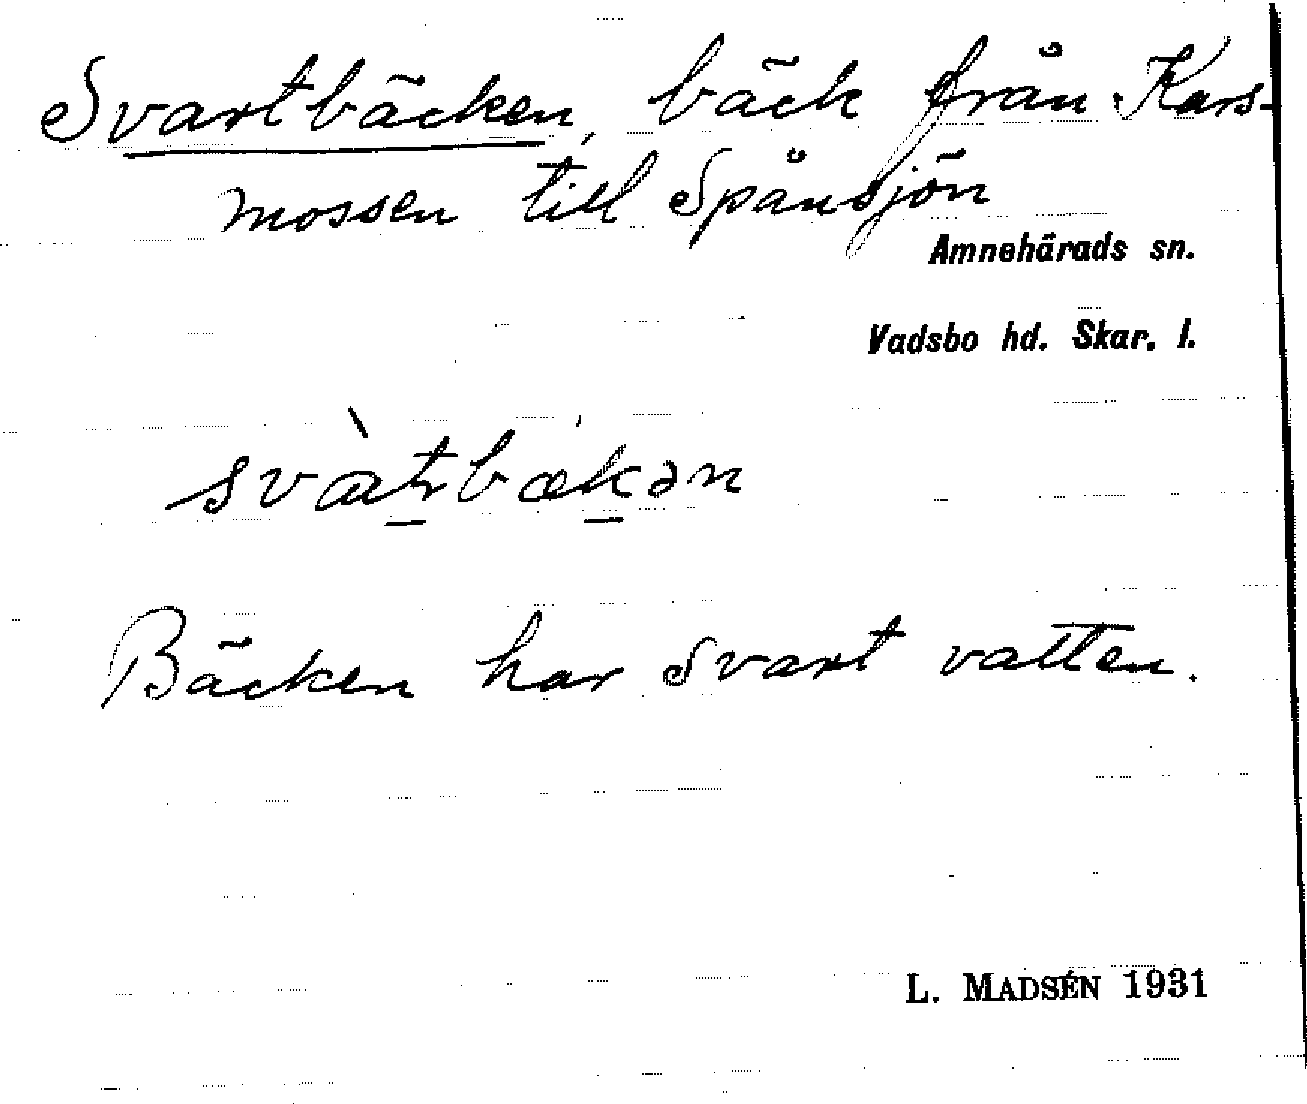 Svartbäcken, bäck från Kars-
mossen till Spånsjön
Amnehärads sn.
Vadsbo hd. Skar. l.
svàtbækən
Bäcken har svart vatten.
L. MADSÉN 1931